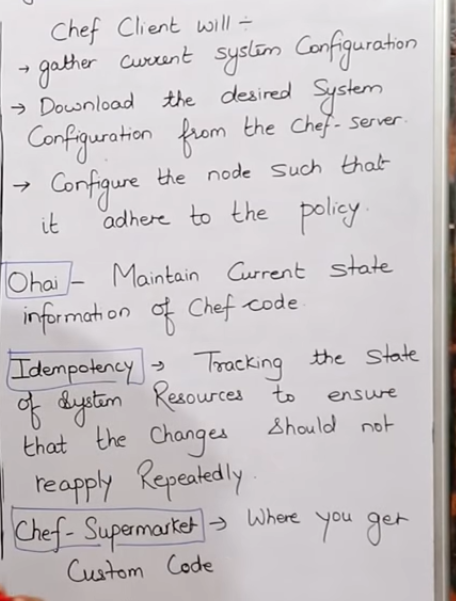 Chef Client will ÷
→ gather current system Configuration
→ Download the desired System
Configuration from the Chef-server.
→ Configure the node such that
it adhere to the policy.
Ohai - Maintain Current state
information of Chef code.
Idempotency → Tracking the State
of System Resources to ensure
that the Changes Should not
reapply Repeatedly.
Chef-Supermarket → Where you get
Custom Code